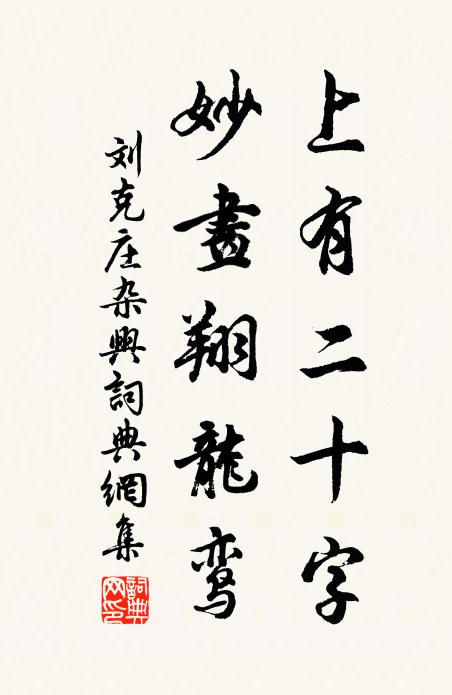 上有二十字
妙畫翔龍鸾
刘克庄杂興詞典網集
詞典網印